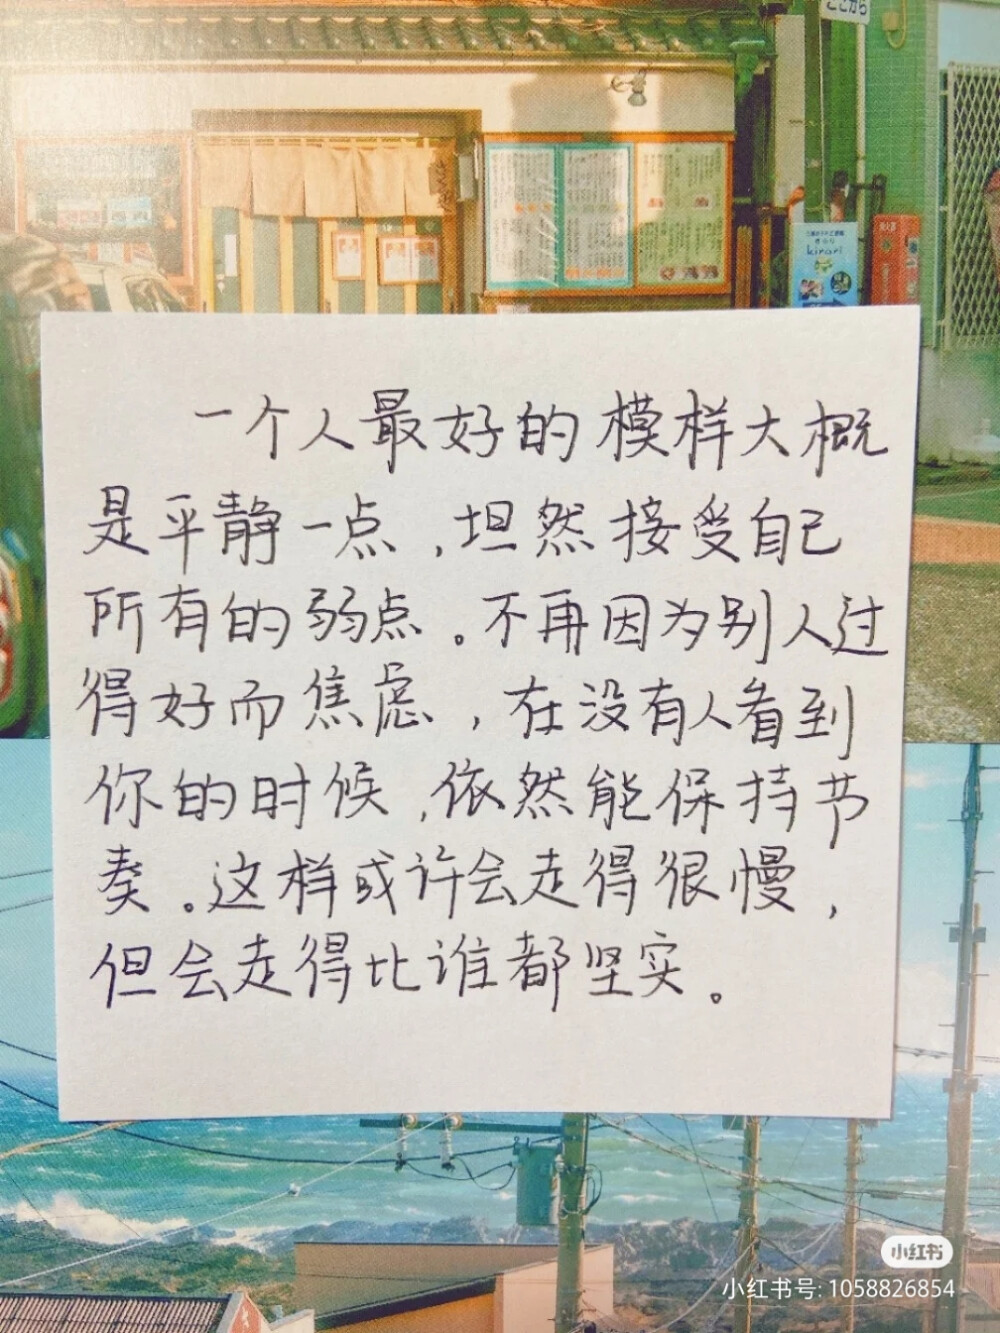 ここから
kirari
一个人最好的模样大概
是平静一点，坦然接受自己
所有的弱点。不再因为别人过
得好而焦虑，在没有人看到
你的时候，依然能保持节
奏。这样或许会走得很慢，
但会走得比谁都坚实。
小红书
小红书号: 1058826854